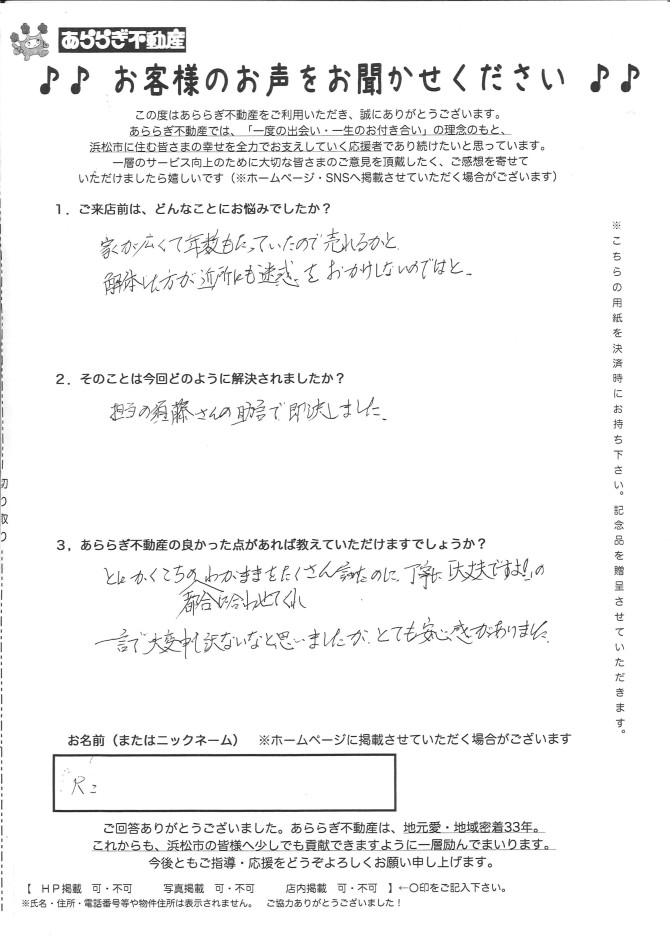 あららぎ不動産
♪♪ お客様のお声をお聞かせください ♪♪
この度はあららぎ不動産をご利用いただき、誠にありがとうございます。
あららぎ不動産では、「一度の出会い・一生のお付き合い」の理念のもと、
浜松市に住む皆さまの幸せを全力でお支えしていく応援者であり続けたいと思っています。
一層のサービス向上のために大切な皆さまのご意見を頂戴したく、ご感想を寄せて
いただけましたら嬉しいです（※ホームページ・SNSへ掲載させていただく場合がございます）
1．ご来店前は、どんなことにお悩みでしたか？
家が広くて年数もたっていたので売れるかと、
解体した方が近所にも迷惑をおかけしないのではと。
2．そのことは今回どのように解決されましたか？
担当の須藤さんの助言で即決しました。
3，あららぎ不動産の良かった点があれば教えていただけますでしょうか？
とにかくこちらのわがままをたくさん言ったのに、丁寧に「大丈夫ですよ!」の
都合に合わせてくれ
一言で大変申し訳ないなと思いましたが、とても安心感がありました。
※こちらの用紙を決済時にお持ち下さい。記念品を贈呈させていただきます。
切り取り
お名前（またはニックネーム） ※ホームページに掲載させていただく場合がございます
ご回答ありがとうございました。あららぎ不動産は、地元愛・地域密着33年。
これからも、浜松市の皆様へ少しでも貢献できますように一層励んでまいります。
今後ともご指導・応援をどうぞよろしくお願い申し上げます。
【 ＨＰ掲載 可・不可 写真掲載 可・不可 店内掲載 可・不可 】←〇印をご記入下さい。
※氏名・住所・電話番号等や物件住所は表示されません。 ご協力ありがとうございました！